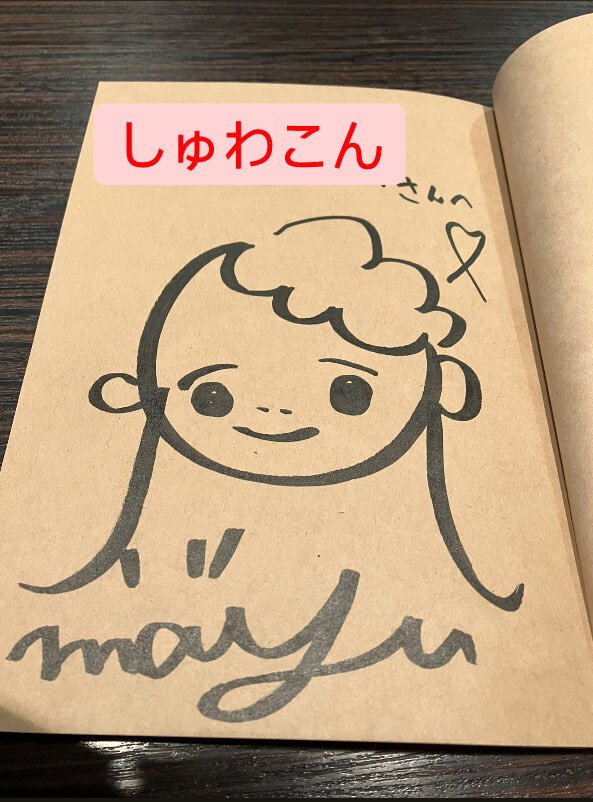 しゅわこん
さんへ
mayu